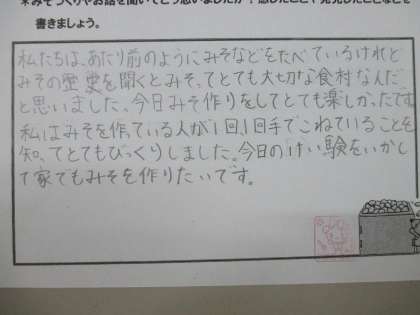 *みそづくりやお話を聞いてどう思いましたか？感じたことや発見したことなどを
書きましょう。
私たちは、あたり前のようにみそなどをたべているけれど
みその歴史を聞くとみそってとても大切な食材なんだ
と思いました。今日みそ作りをしてとても楽しかったです
私はみそを作っている人が1回1回手でこねていることを
知ってとてもびっくりしました。今日のけい験をいかし
て家でもみそを作りたいです。